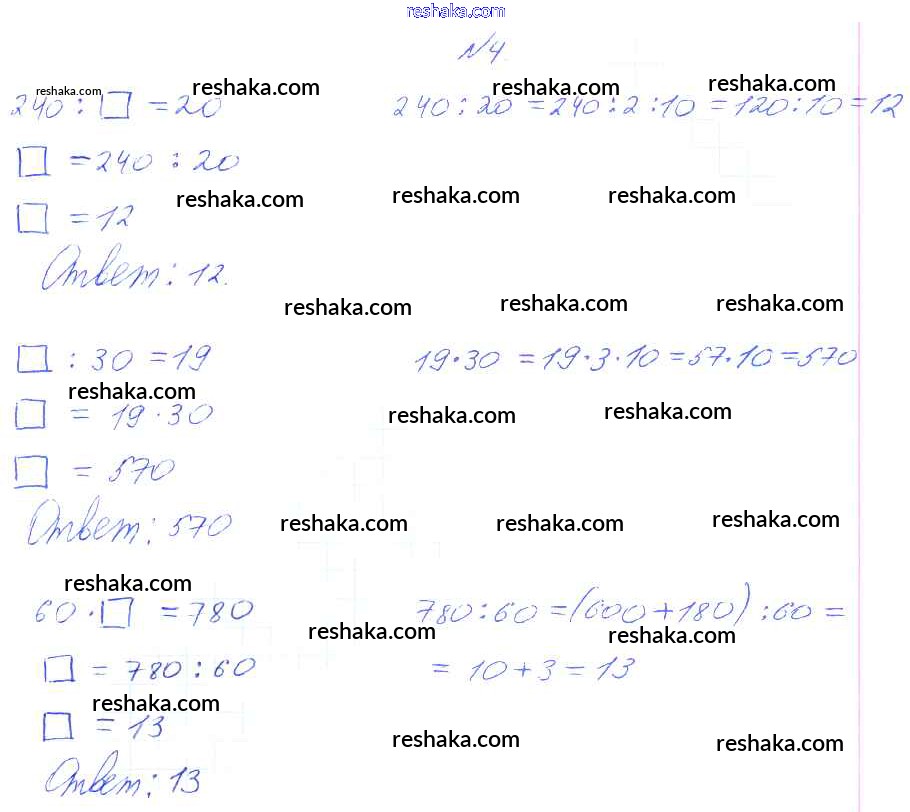 reshaka.com
N4.
reshaka.com reshaka.com reshaka.com reshaka.com
240 : □ = 20 240 : 20 = 240 : 2 : 10 = 120 : 10 = 12
□ = 240 : 20
reshaka.com reshaka.com reshaka.com
□ = 12
Ответ: 12.
reshaka.com reshaka.com reshaka.com
□ : 30 = 19 19 · 30 = 19 · 3 · 10 = 57 · 10 = 570
reshaka.com reshaka.com reshaka.com
□ = 19 · 30
□ = 570
Ответ: 570
reshaka.com reshaka.com reshaka.com
reshaka.com
60 · □ = 780 780 : 60 = (600 + 180) : 60 =
reshaka.com reshaka.com
□ = 780 : 60 = 10 + 3 = 13
reshaka.com
□ = 13
reshaka.com reshaka.com
Ответ: 13